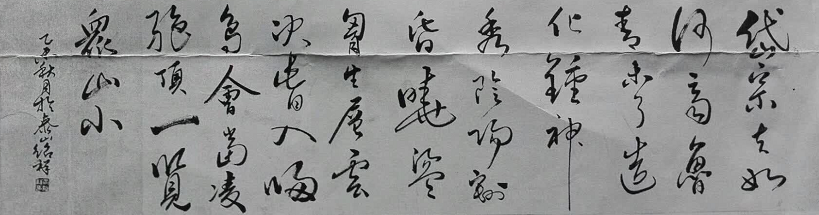 岱宗夫如
何齊魯
青未了造
化鍾神
秀陰陽割
昏曉盪
胷生層雲
決眥入歸
鳥會當凌
絕頂一覽
衆山小
乙丑秋月於泰山紹祥